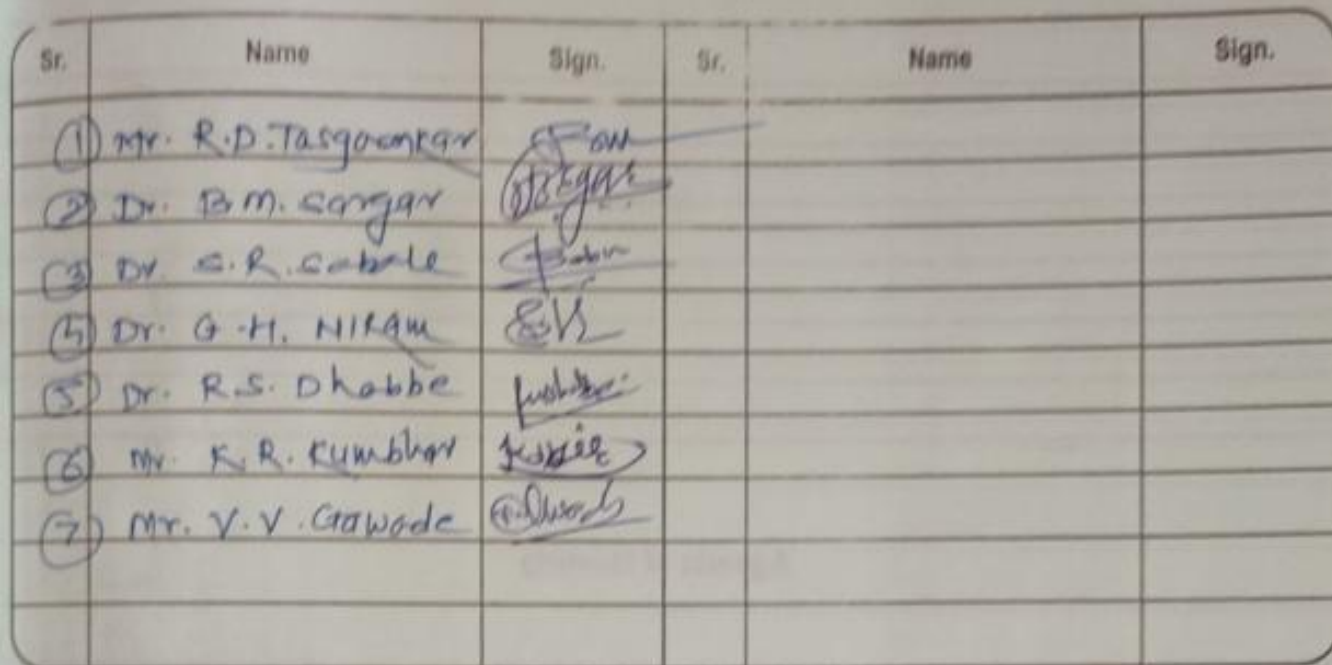 Sr. Name Sign. Sr. Name Sign.
1 Mr. R.D. Tasgaonkar
2 Dr. B.M. Sargar
3 Dr. S.R. Sabale
4 Dr. G.H. Nikam
5 Dr. R.S. Dhabbe
6 Mr. K.R. Kumbhar
7 Mr. V.V. Gawade